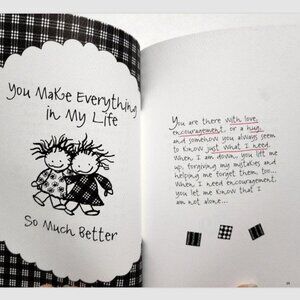 You Make Everything
in My Life
So Much Better
You are there with love,
encouragement, or a hug,
and somehow you always seem
to know just what I need.
When I am down, you lift me
up, forgiving my mistakes and
helping me forget them, too...
When I need encouragement,
you let me know that I
am not alone...